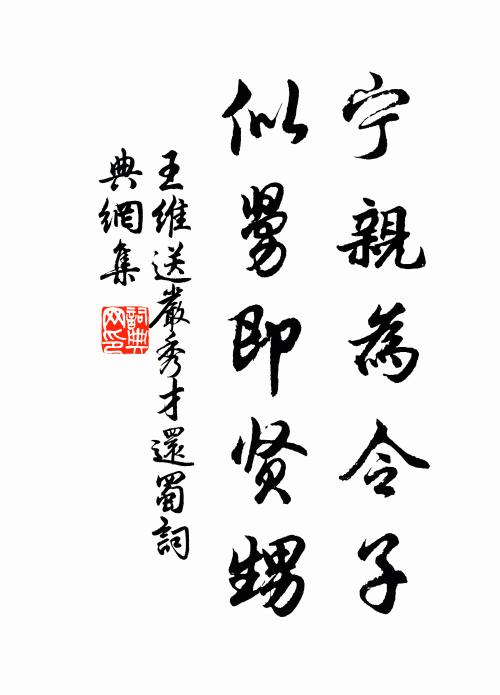 宁親為令子
似舅即贤甥
王維送嚴秀才還蜀詞
典網集
詞典
网印